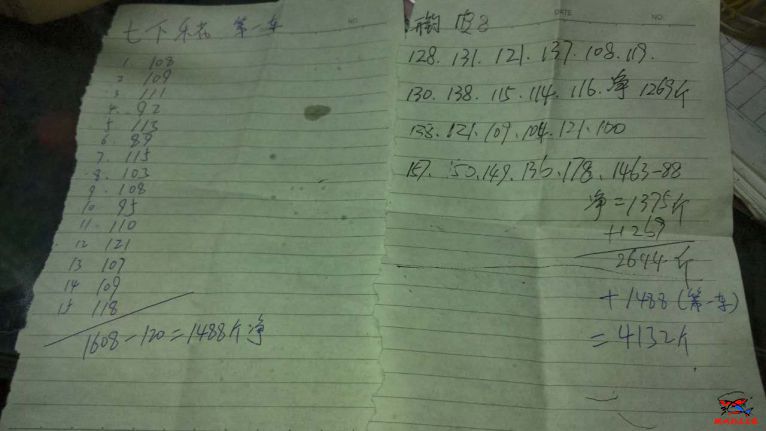 七下乐花 第一车
1 108
2 109
3 111
4 92
5 113
6 89
7. 115
8. 103
9 108
10 95
11. 110
12 121
13 107
14 109
15 118
1608-120=1488斤净
DATE
NO.
128. 131. 121. 137. 108. 119.
130. 138. 115. 114. 116. 净 1269斤
138. 121. 109. 104. 121. 100
157. 150. 149. 136. 178. 1463-88
净=1375斤
+1269
2644斤
+1488(第一车)
=4132斤